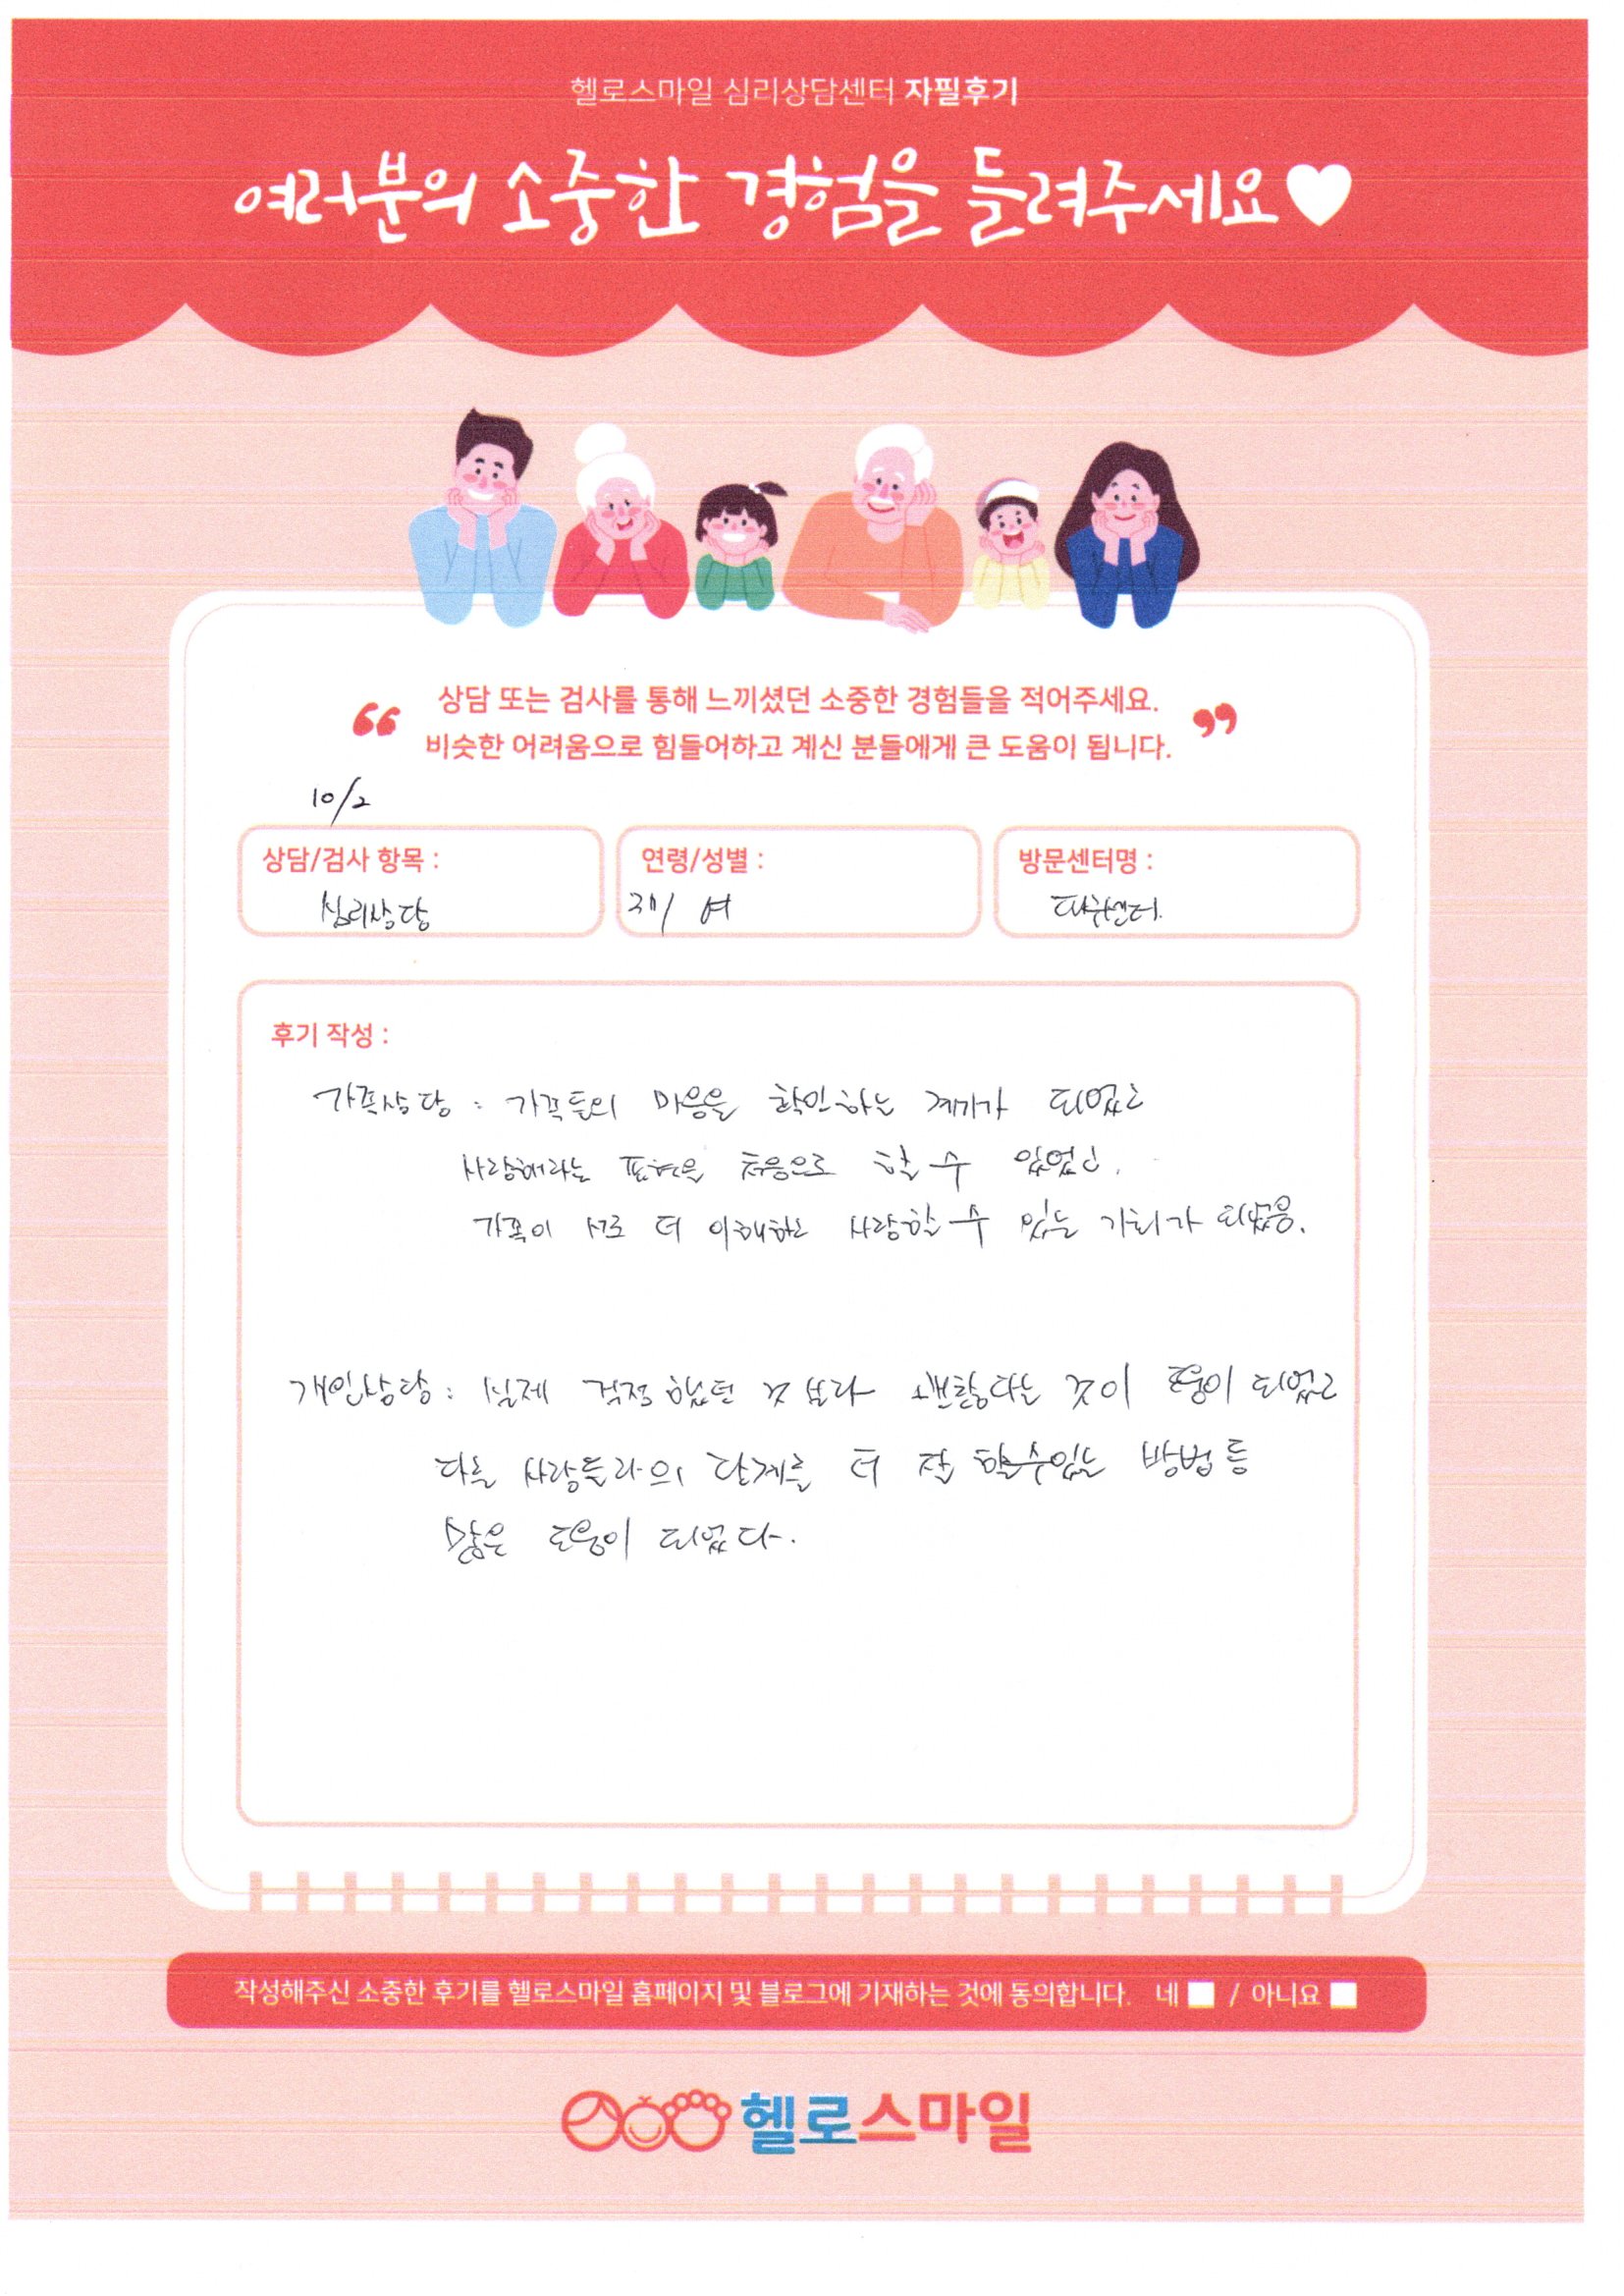 헬로스마일 심리상담센터 자필후기
여러분의 소중한 경험을 들려주세요
상담 또는 검사를 통해 느끼셨던 소중한 경험들을 적어주세요.
비슷한 어려움으로 힘들어하고 계신 분들에게 큰 도움이 됩니다.
10/2
상담/검사 항목 :
심리상담
연령/성별 :
/ 여
방문센터명 :
후기 작성 :
가족상담 : 가족들의 마음을 확인하는 계기가 되었고
사랑해라는 표현을 처음으로 할 수 있었고.
가족이 서로 더 이해하고 사랑할 수 있는 기회가 되었음.
개인상담 : 실제 걱정했던 것 보다 괜찮다는 것이 도움이 되었고
다른 사람들과의 관계를 더 잘 할수있는 방법 등
많은 도움이 되었다.
작성해주신 소중한 후기를 헬로스마일 홈페이지 및 블로그에 기재하는 것에 동의합니다. 네 / 아니요
헬로스마일